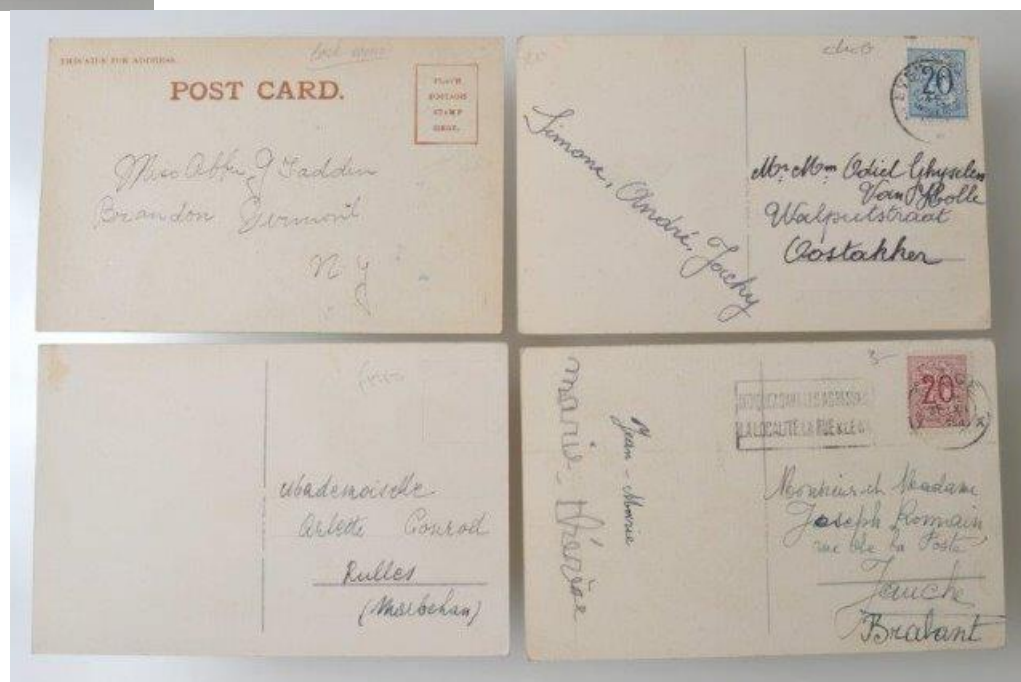 THIS SIDE FOR ADDRESS.
POST CARD.
PLACE
POSTAGE
STAMP
HERE.
Miss Abbie J Fadden
Brandon Vermont
N Y
20
Simone, André, Jacky
Mr Mm Odiel Ghyselen
Van Holle
Walputstraat
Oostakker
Mademoiselle
Arlette Conrod
Rulles
(Marbehan)
20
Marie-Thérèse
Jean-Marie
LA LOCALITE LA RUE & LE
Monsieur et Madame
Joseph Romain
rue de la Poste
Jauche
Brabant